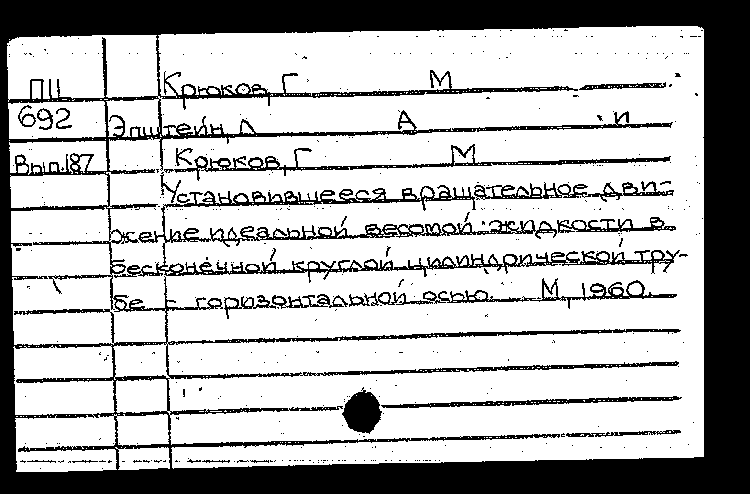 ПЦ Крюков, Г М
692 Эпштейн, Л А и
Вып.187 Крюков, Г М
Установившееся вращательное дви-
жение идеальной весомой жидкости в
бесконечной круглой цилиндрической тру-
бе - горизонтальной осью. М, 1960.